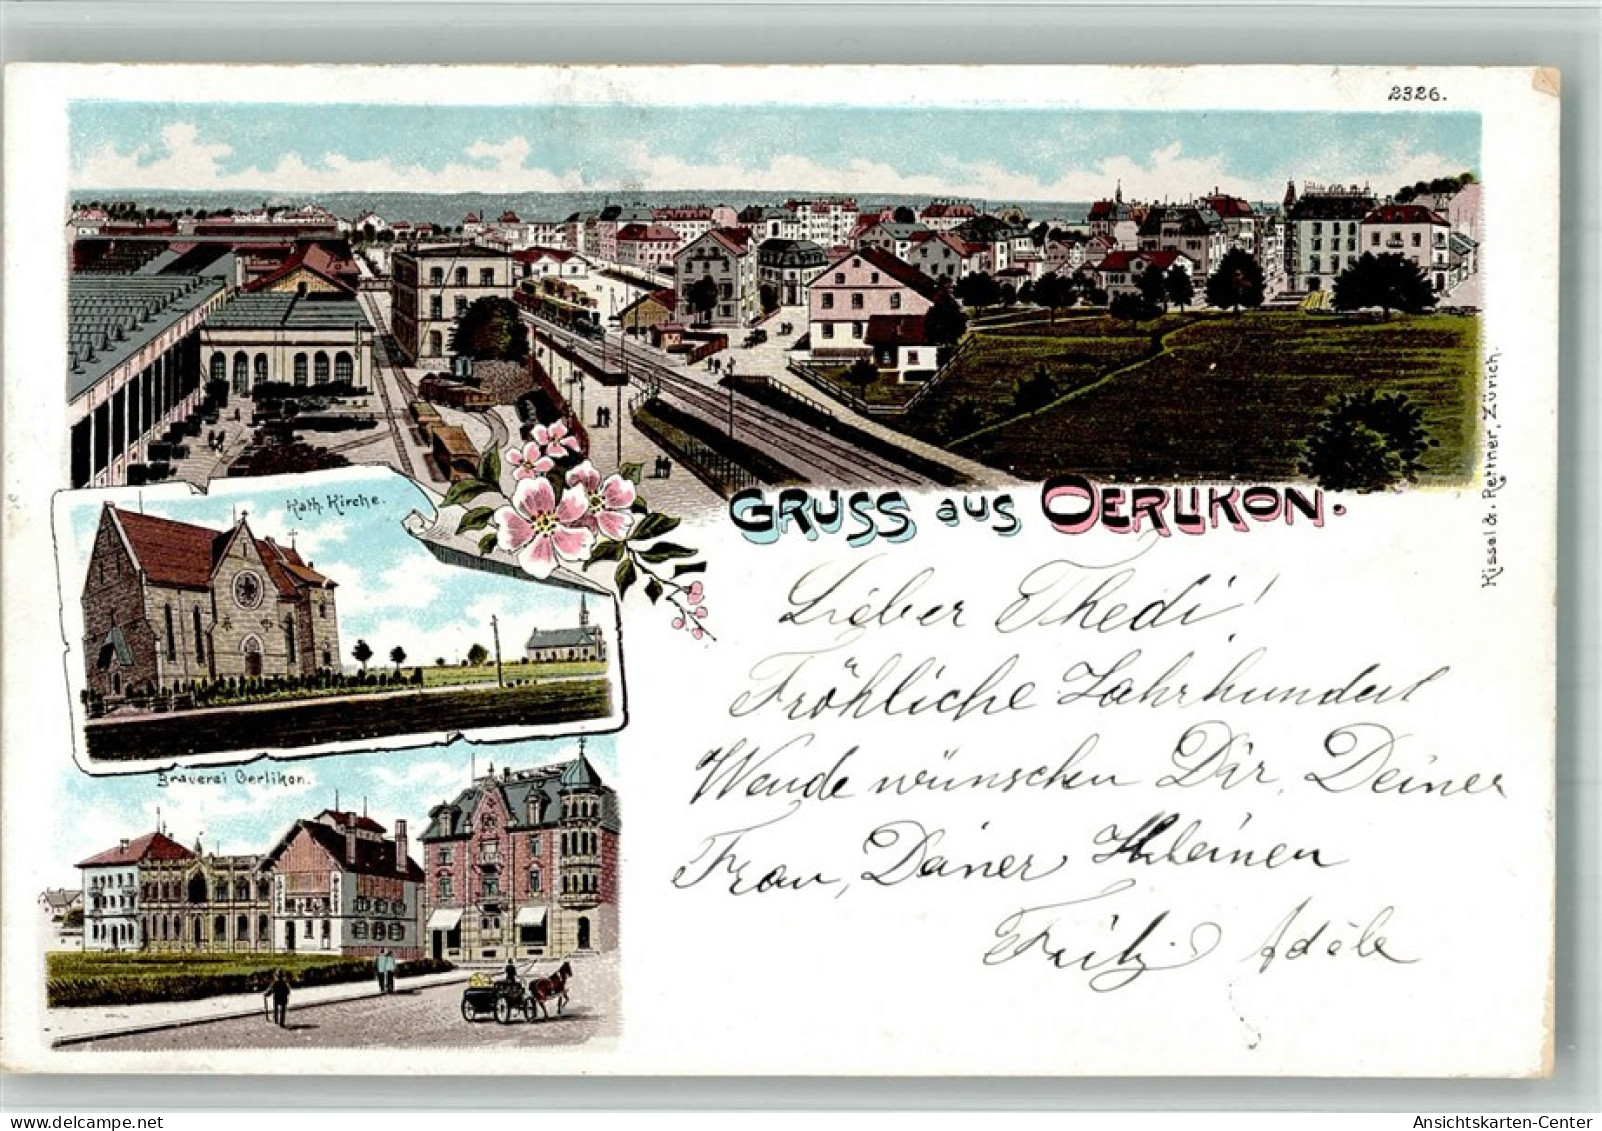 2326.
Kissel &. Rettner, Zürich.
Kath. Kirche.
GRUSS aus OERLIKON.
Lieber Thedi!
Fröhliche Jahrhundert
Wende wünschen Dir, Deiner
Frau, Deiner Kleinen
Fritz Adèle
Brauerei Oerlikon.
Ansichtskarten-Center